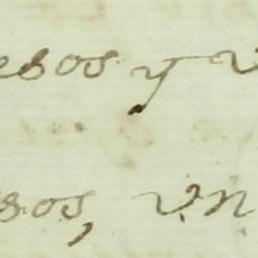 esos y v
sos, vn